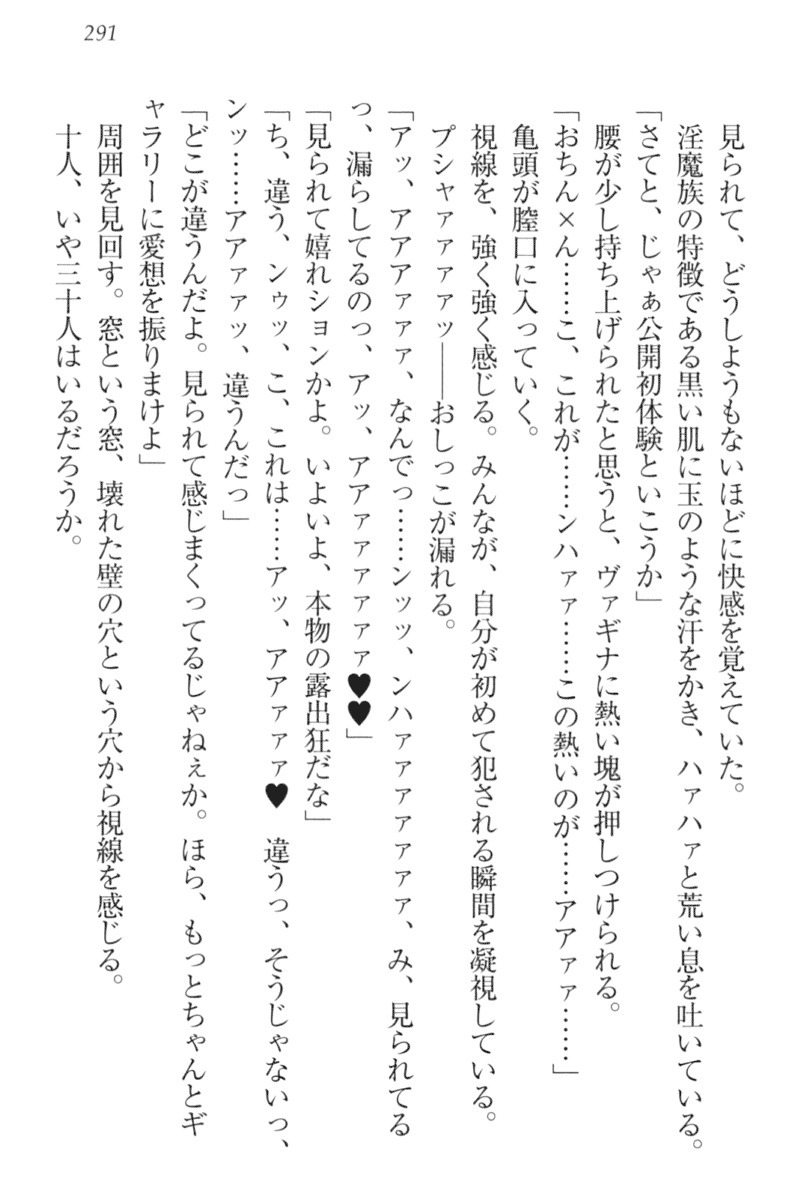 291
見られて、どうしようもないほどに快感を覚えていた。
淫魔族の特徴である黒い肌に玉のような汗をかき、ハァハァと荒い息を吐いている。
「さてと、じゃぁ公開初体験といこうか」
腰が少し持ち上げられたと思うと、ヴァギナに熱い塊が押しつけられる。
「おちん×ん……こ、これが……ンハァァ……この熱いのが……アアァァ……」
亀頭が膣口に入っていく。
視線を、強く強く感じる。みんなが、自分が初めて犯される瞬間を凝視している。
プシャァァァァッ――おしっこが漏れる。
「アッ、アアアァァァ、なんでっ……ンッッ、ンハァァァァァァァァ、み、見られてる
っ、漏らしてるのっ、アッ、アアァァァァァァァ♥♥」
「見られて嬉れションかよ。いよいよ、本物の露出狂だな」
「ち、違う、ンゥッ、こ、これは……アッ、アアァァァ♥　違うっ、そうじゃないっ、
ンッ……アアァァッ、違うんだっ」
「どこが違うんだよ。見られて感じまくってるじゃねぇか。ほら、もっとちゃんとギ
ャラリーに愛想を振りまけよ」
周囲を見回す。窓という窓、壊れた壁の穴という穴から視線を感じる。
十人、いや三十人はいるだろうか。